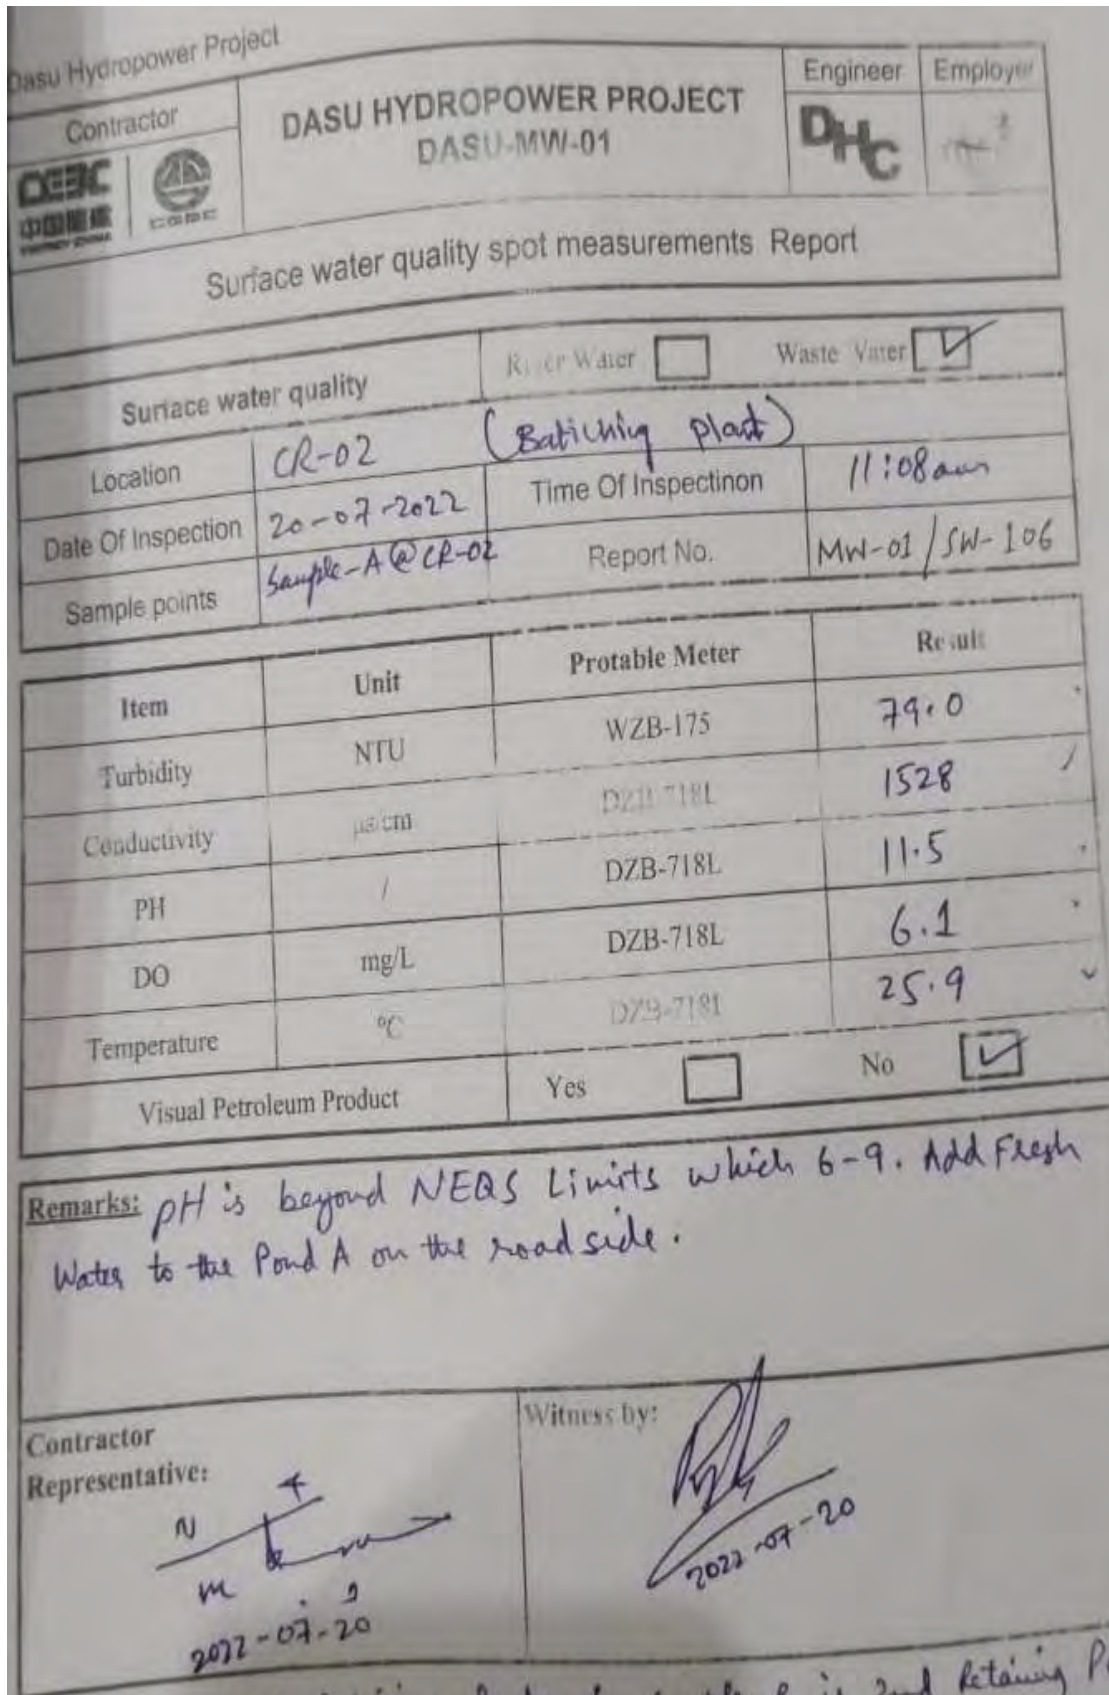 Dasu Hydropower Project
Contractor
DASU HYDROPOWER PROJECT
DASU-MW-01
Engineer
Employer
DHC
CGGC
Surface water quality spot measurements Report
Surface water quality
River Water
Waste Water
Location
CR-02 (Batiching plant)
Date Of Inspection
20-07-2022
Time Of Inspectinon
11:08am
Sample points
Sample-A@CR-02
Report No.
MW-01/SW-106
Item Unit Protable Meter Result
Turbidity NTU WZB-175 79.0
Conductivity µs/cm DZB-718L 1528
PH / DZB-718L 11.5
DO mg/L DZB-718L 6.1
Temperature ºC DZB-718L 25.9
Visual Petroleum Product Yes No
Remarks: pH is beyond NEQS Limits which 6-9. Add Fresh
Water to the Pond A on the road side.
Contractor
Representative:
2022-07-20
Witness by:
2022-07-20
is 2nd Retaining